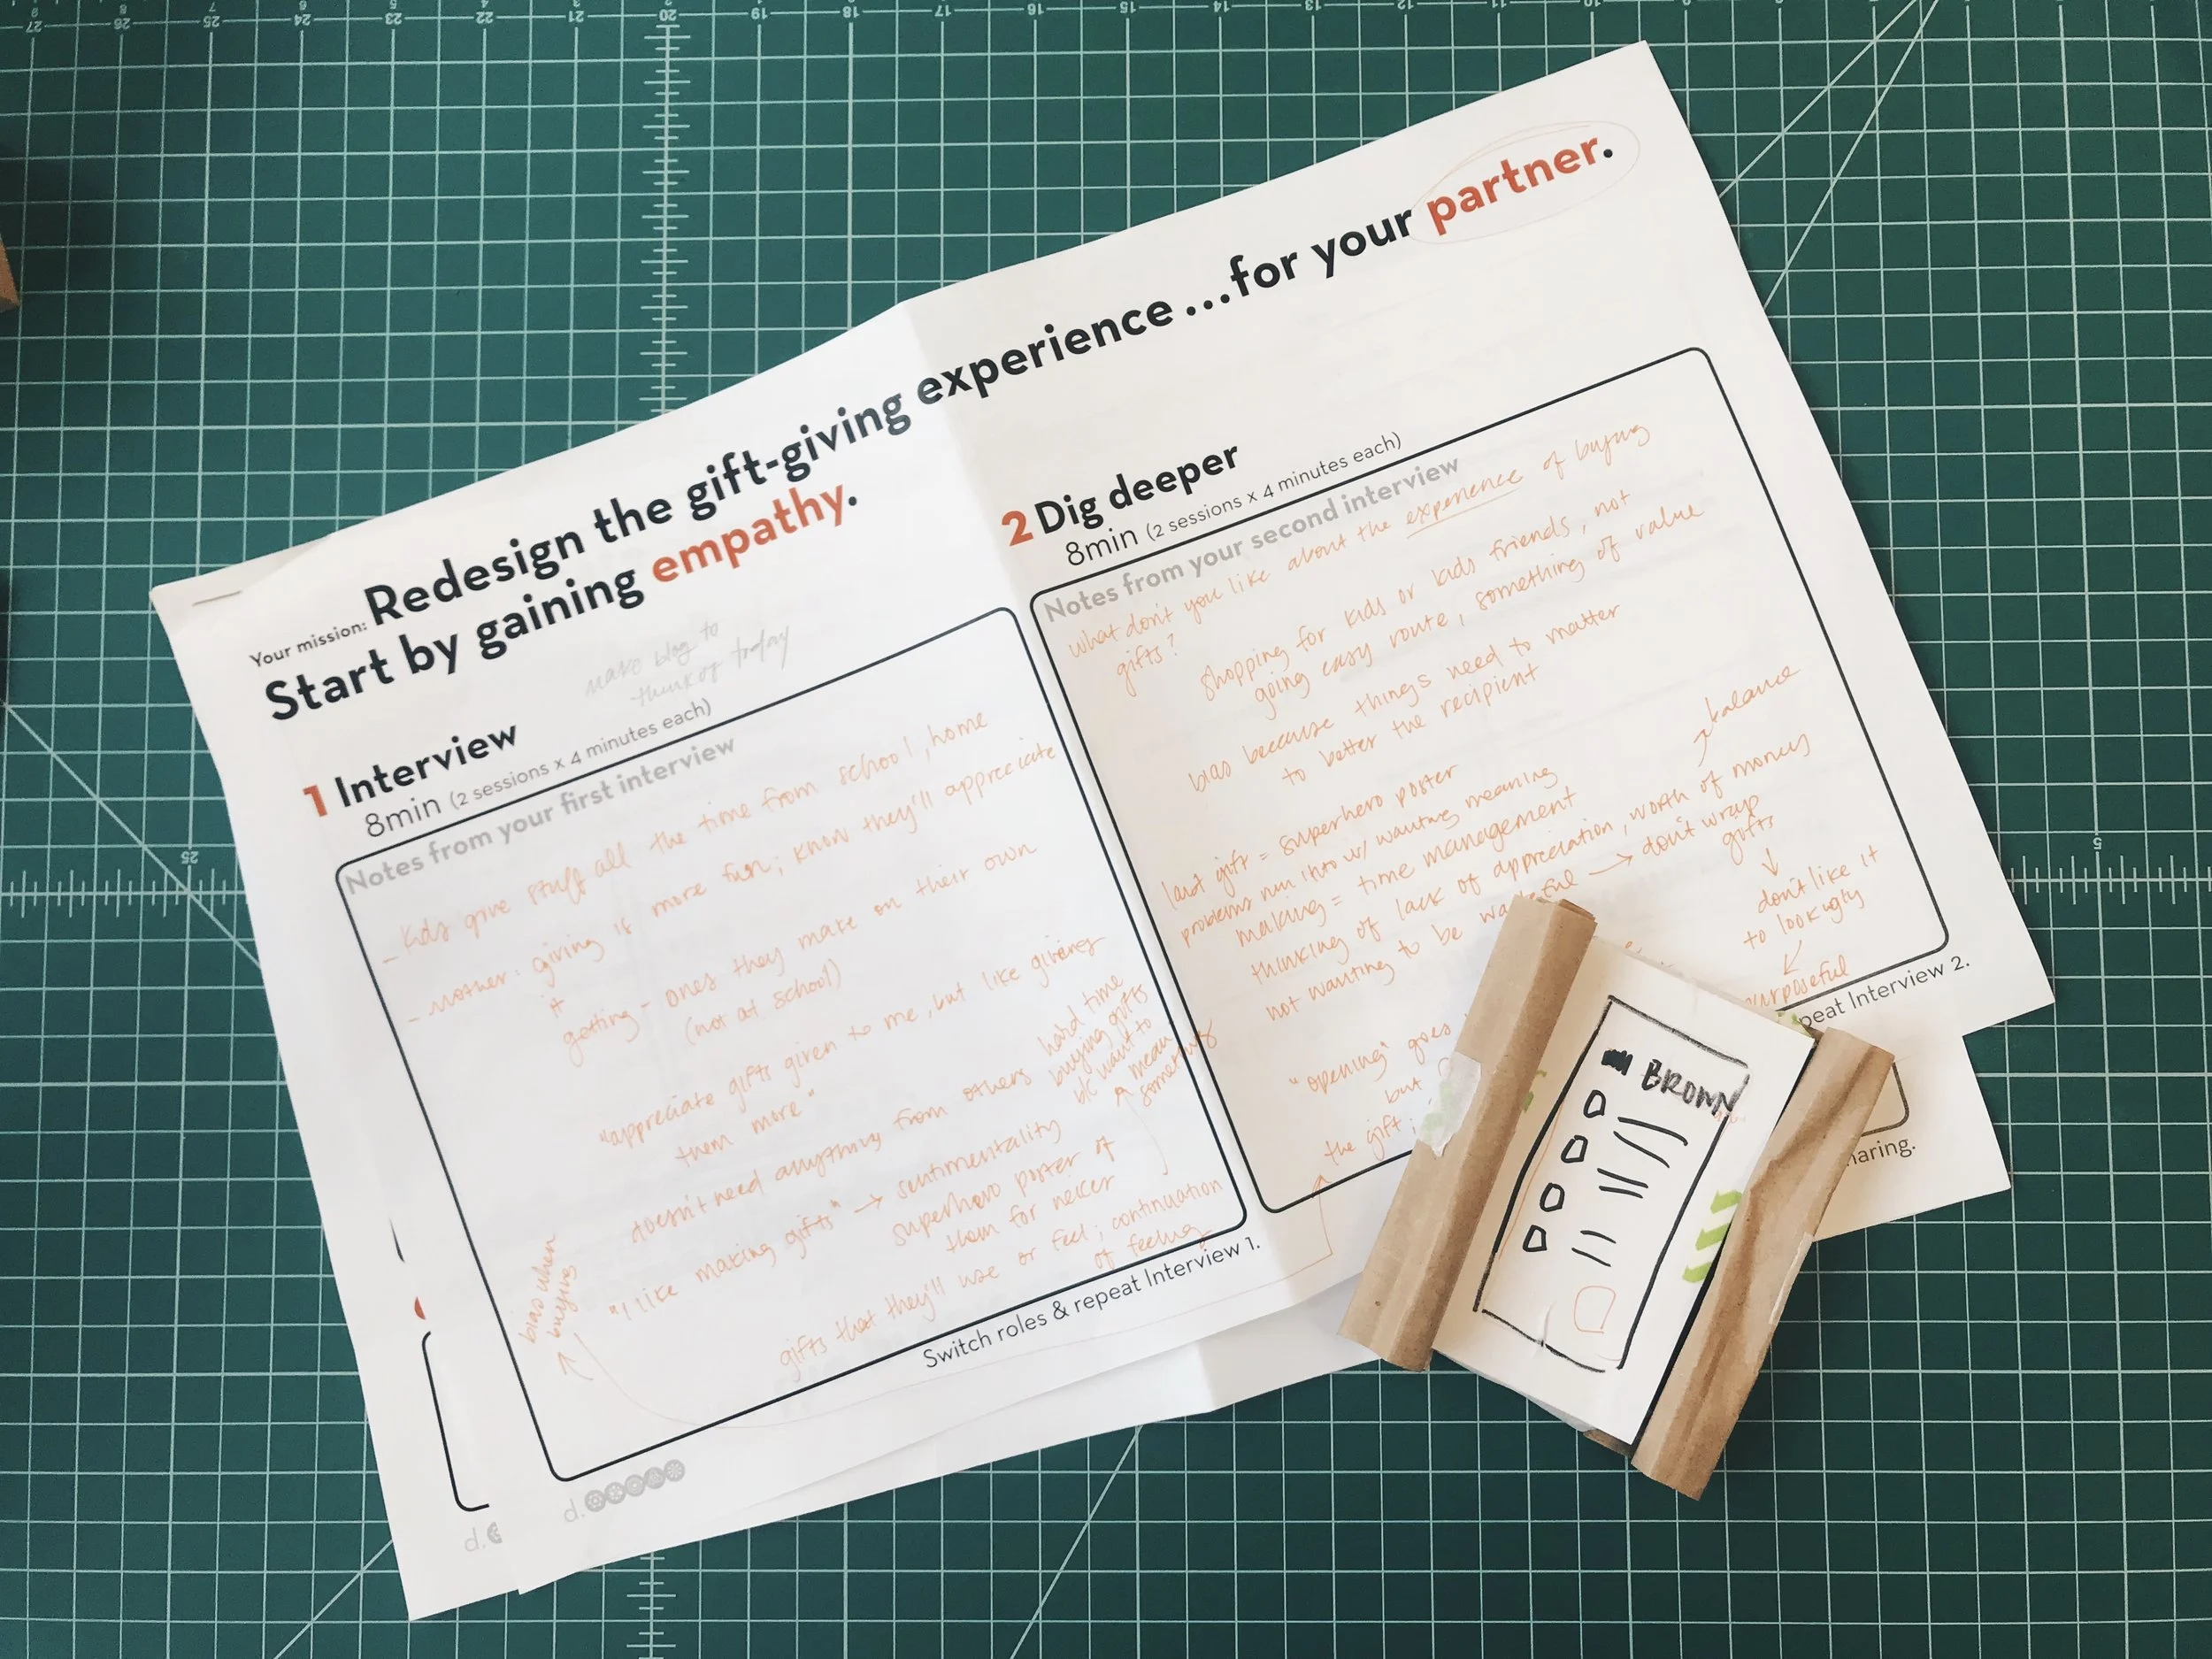 Your mission: Redesign the gift-giving experience ...for your partner.
Start by gaining empathy.
make blog to
think of today
1 Interview
8min (2 sessions x 4 minutes each)
Notes from your first interview
- kids give stuff all the time from school, home
- mother: giving is more fun; know they'll appreciate
it
getting - ones they make on their own
(not at school)
"appreciate gifts given to me, but like giving
them more"
doesn't need anything from others
hard time
buying gifts
b/c want to
mean
something
"I like making gifts" → sentimentality
superhero poster of
them for
gifts that they'll use or feel; continuation
of feeling
bias when
buying
Switch roles & repeat Interview 1.
d.
2 Dig deeper
8min (2 sessions x 4 minutes each)
Notes from your second interview
what don't you like about the experience of buying
gifts?
shopping for kids or kids friends, not
going easy route, something of value
bias because things need to matter
to better the recipient
last gift = superhero poster
problems run into w/ wanting meaning
making = time management
balance
thinking of lack of appreciation, worth of money
not wanting to be wasteful → don't wrap
gifts
don't like it
to look ugly
purposeful
"opening" goes
but
the gift;
peat Interview 2.
haring.
d.
BROWN